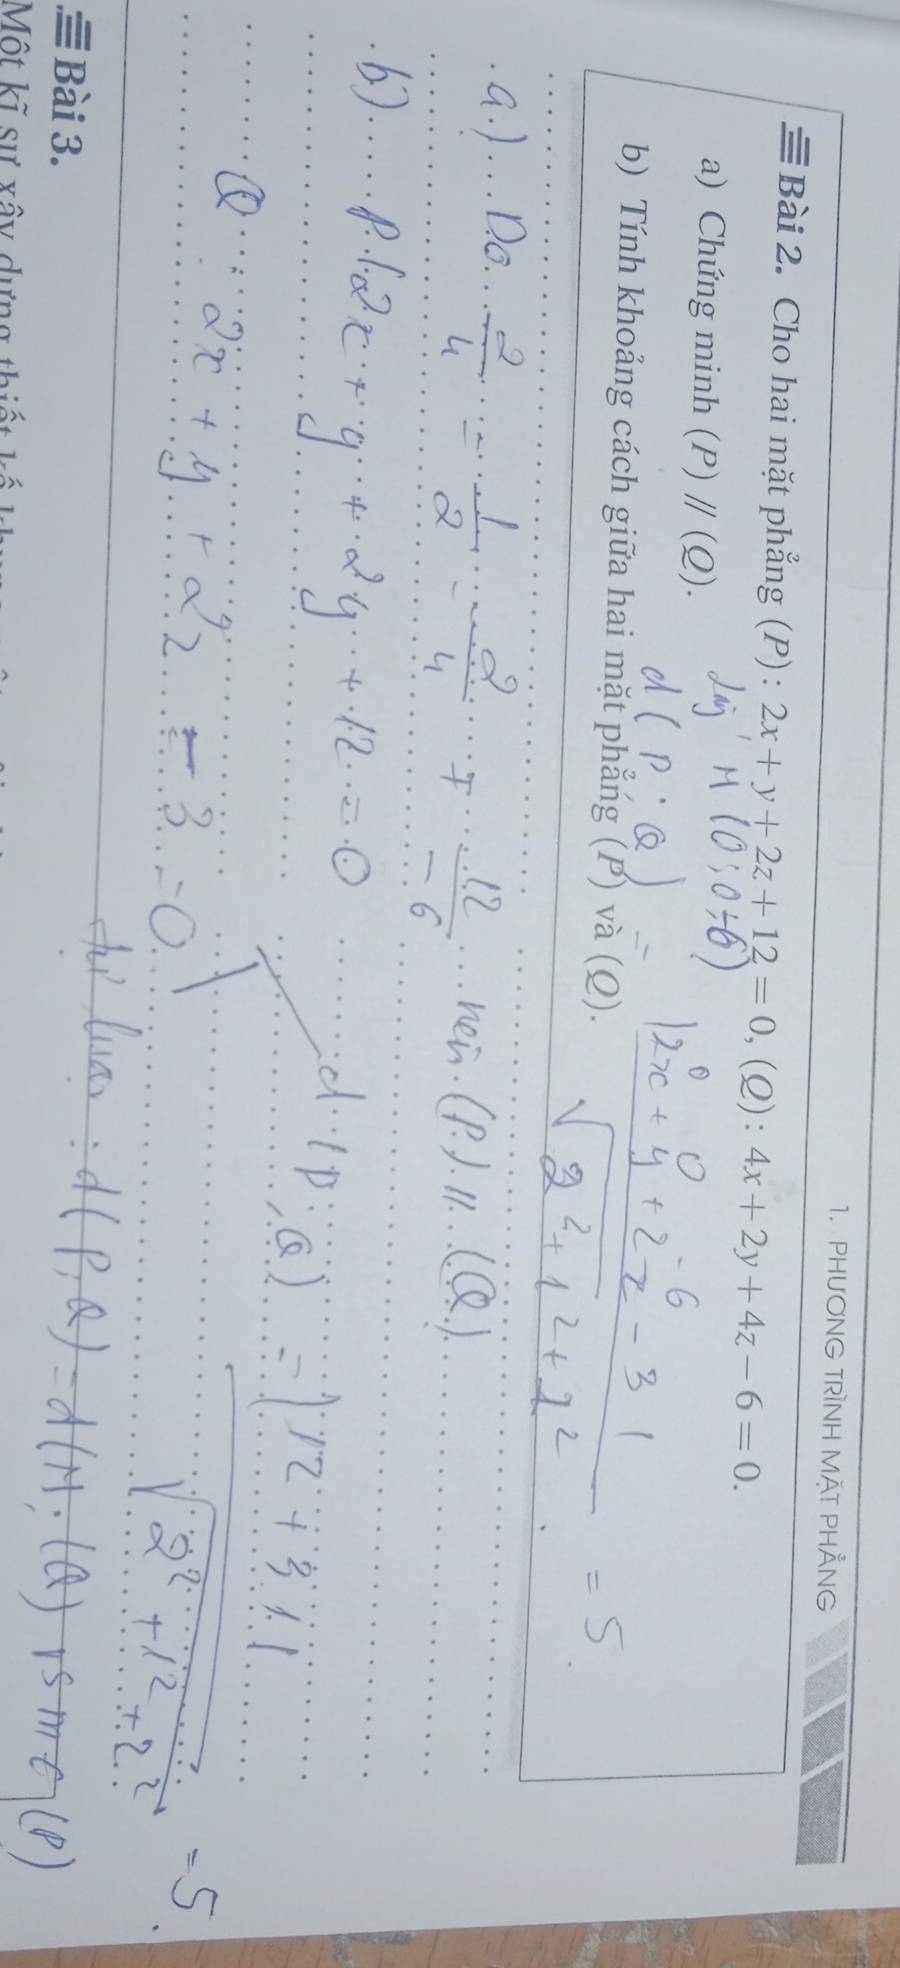 1. PHƯƠNG TRÌNH MẶT PHẲNG
Bài 2. Cho hai mặt phẳng (P): 2x + y + 2z + 12 = 0, (Q): 4x + 2y + 4z − 6 = 0.
a) Chứng minh (P) // (Q).
b) Tính khoảng cách giữa hai mặt phẳng (P) và (Q).
Lấy M (0; 0; -6)
d(P; Q) = |2x + y + 2z - 3| / √(2² + 1² + 2²) = 5.
0 0 -6
a) Do 2/4 = 1/2 = 2/4 ≠ 12/-6 nên (P) // (Q)
b) P: 2x + y + 2y + 12 = 0
Q: 2x + y + 2z - 3 = 0
d(P; Q) = |12 + 3| / √(2² + 1² + 2²) = 5.
tự luận: d(P, Q) = d(M; (Q)) (P)
Bài 3.
Một kĩ sư xây dựng thiết kế